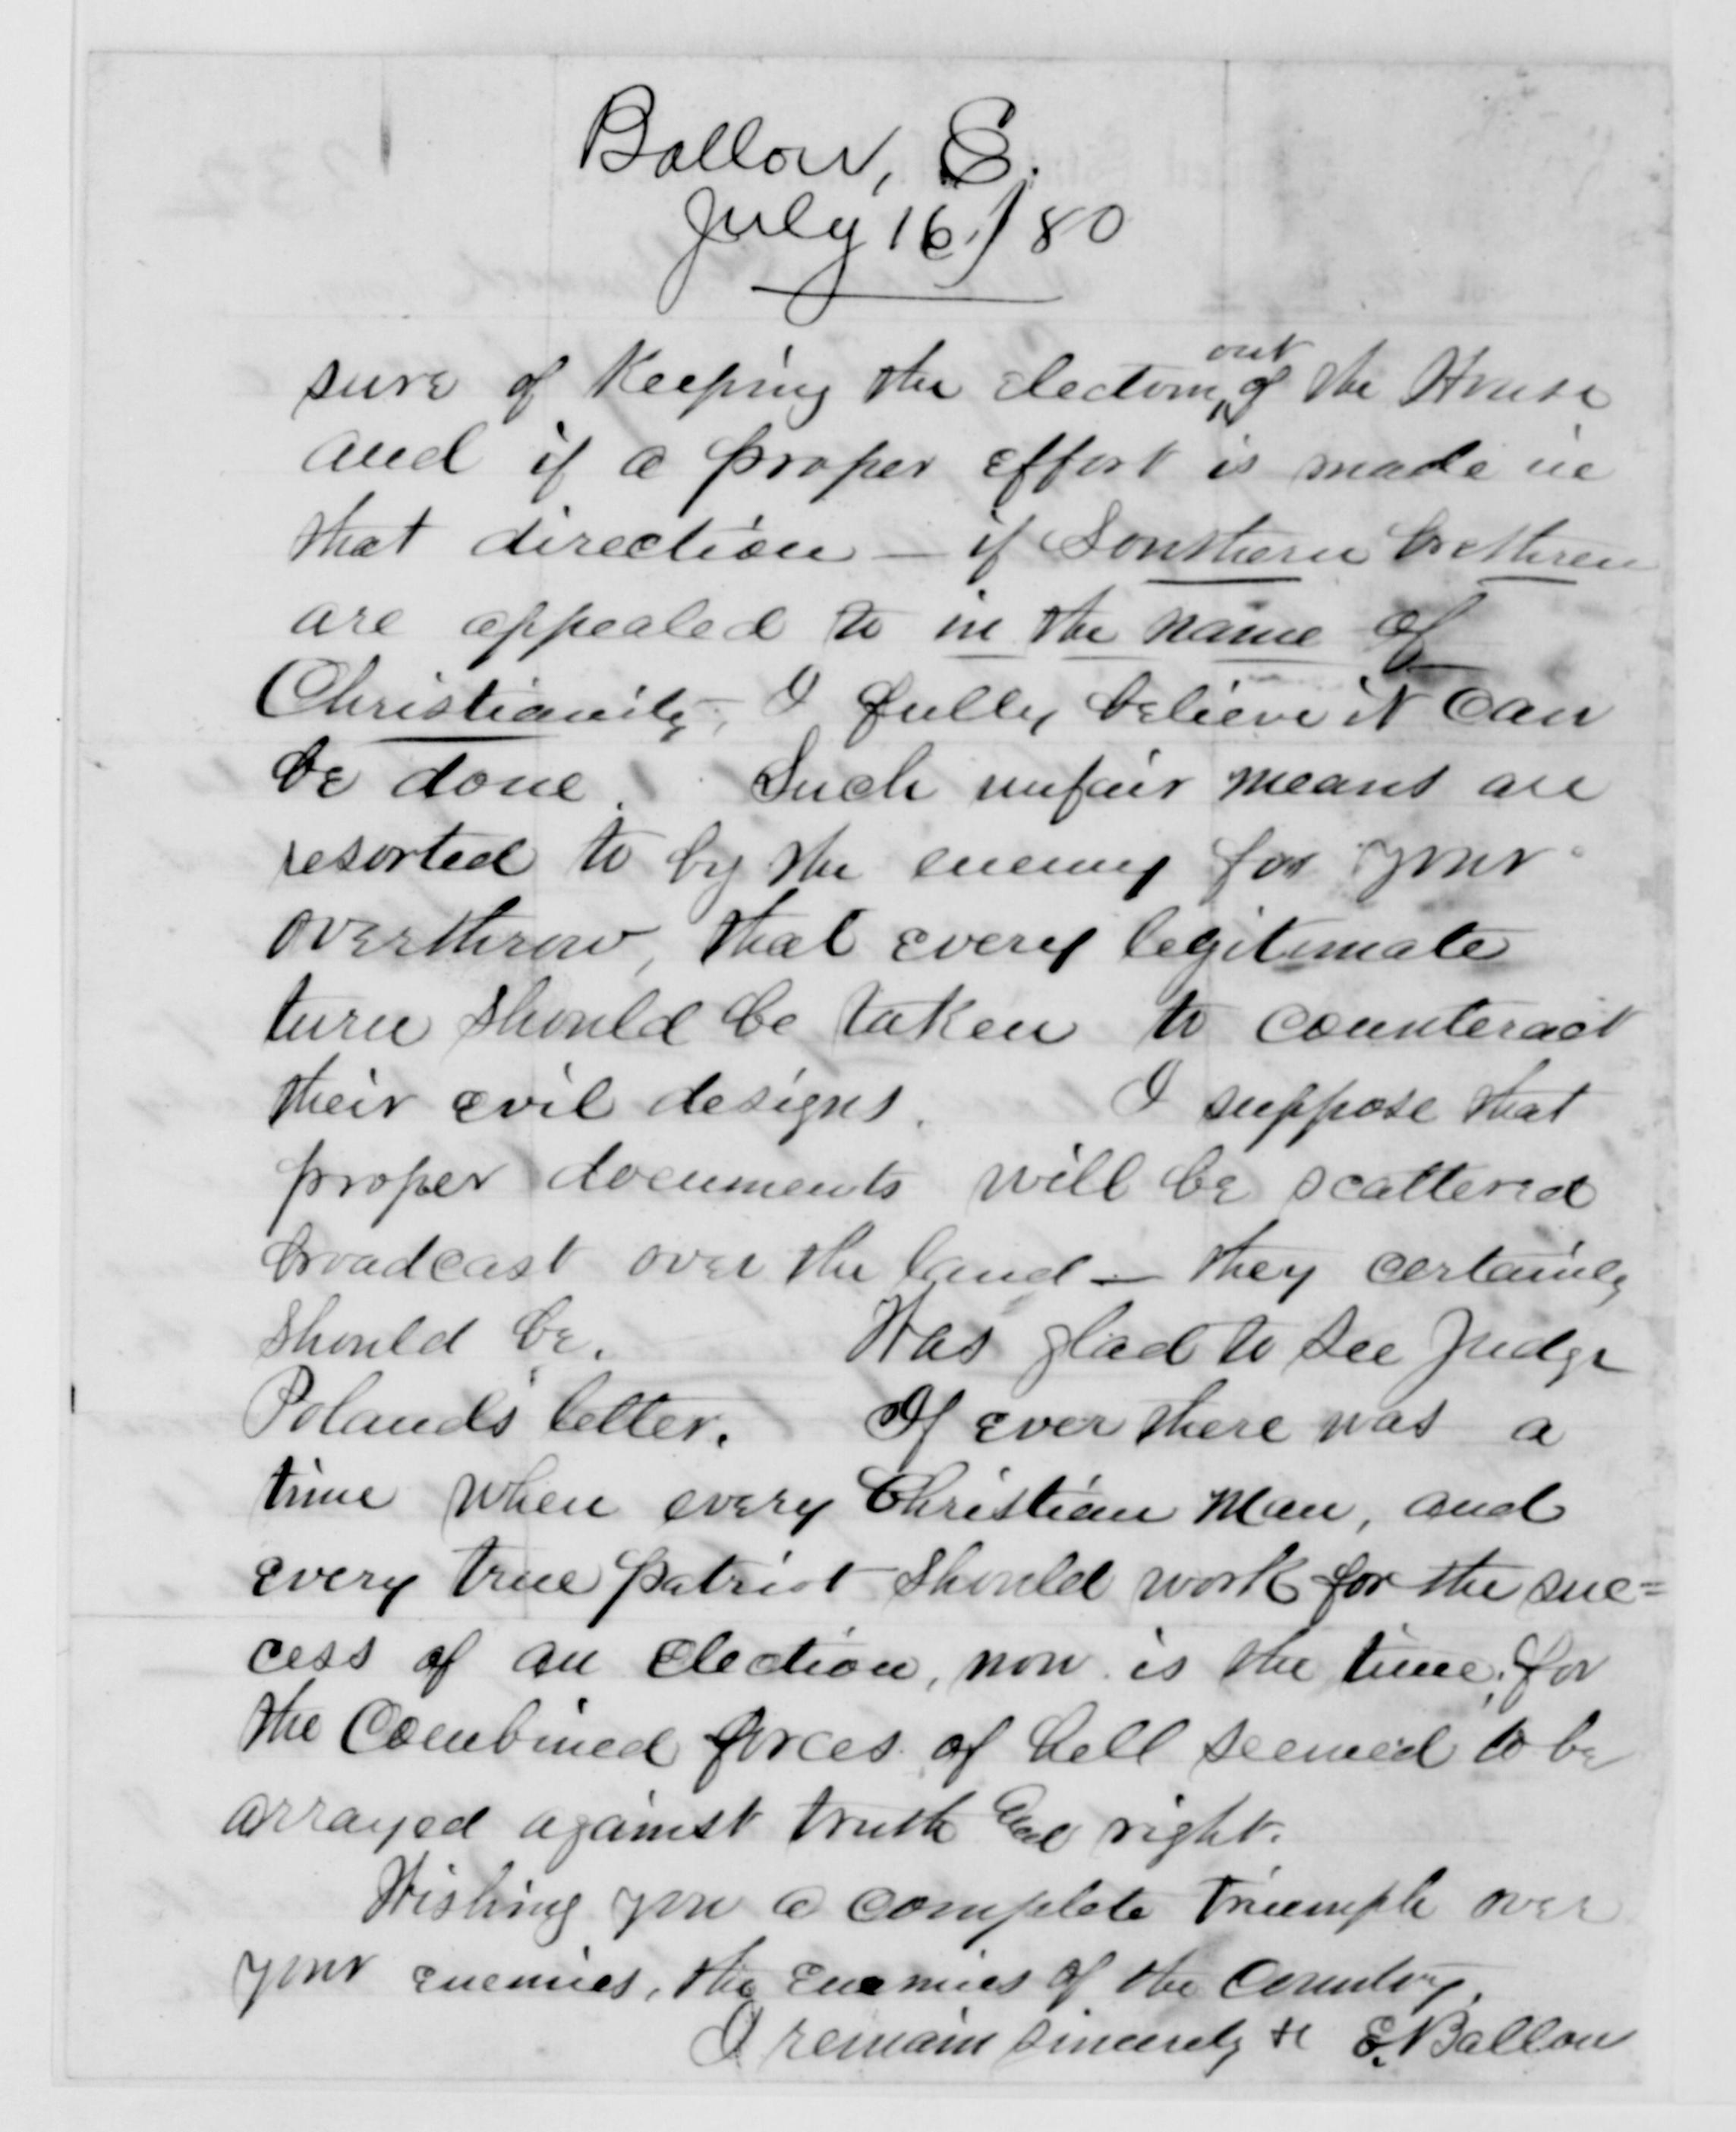 Ballou, E.
July 16/80
sure of Keeping the election out of the House
and if a proper effort is made in
that direction — if Southern brethren
are appealed to in the name of
Christianity, I fully believe it can
be done. Such unfair means are
resorted to by the enemy for your
overthrow, that every legitimate
turn should be taken to counteract
their evil designs. I suppose that
proper documents will be scattered
broadcast over the land — they certainly
should be. Was glad to see Judge
Poland's letter. If ever there was a
time when every Christian Man, and
every true patriot should work for the suc=
cess of an Election, now is the time, for
the Combined forces of hell seemed to be
arrayed against truth and right.
Wishing you a complete triumph over
your enemies, the enemies of the Country,
I remain sincerely &c E. Ballou